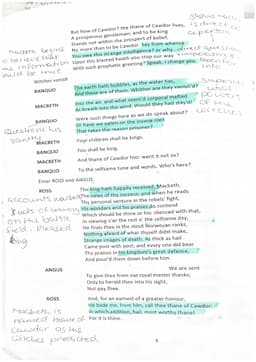 But how of Cawdor? the thane of Cawdor lives,
A prosperous gentleman; and to be king
Stands not within the prospect of belief,
No more than to be Cawdor. Say from whence
You owe this strange intelligence? or why
Upon this blasted heath you stop our way
With such prophetic greeting? Speak, I charge you.
Witches vanish
BANQUO
The earth hath bubbles, as the water has,
And these are of them. Whither are they vanish'd?
MACBETH
Into the air; and what seem'd corporal melted
As breath into the wind. Would they had stay'd!
BANQUO
Were such things here as we do speak about?
Or have we eaten on the insane root
That takes the reason prisoner?
MACBETH
Your children shall be kings.
BANQUO
You shall be king.
MACBETH
And thane of Cawdor too: went it not so?
BANQUO
To the selfsame tune and words. Who's here?
Enter ROSS and ANGUS
ROSS
The king hath happily received, Macbeth,
The news of thy success; and when he reads
Thy personal venture in the rebels' fight,
His wonders and his praises do contend
Which should be thine or his: silenced with that,
In viewing o'er the rest o' the selfsame day,
He finds thee in the stout Norweyan ranks,
Nothing afeard of what thyself didst make,
Strange images of death. As thick as hail
Came post with post; and every one did bear
Thy praises in his kingdom's great defence,
And pour'd them down before him.
ANGUS
We are sent
To give thee from our royal master thanks;
Only to herald thee into his sight,
Not pay thee.
ROSS
And, for an earnest of a greater honour,
He bade me, from him, call thee thane of Cawdor:
In which addition, hail, most worthy thane!
For it is thine.
Macbeth
begins
to believe
the information
could be true
Question his
sanity
accounts
on the battle
field. Pleased
King
Macbeth is
named thane of
Cawdor as the
witches predicted
is direct
question
powers
of the
witches
6